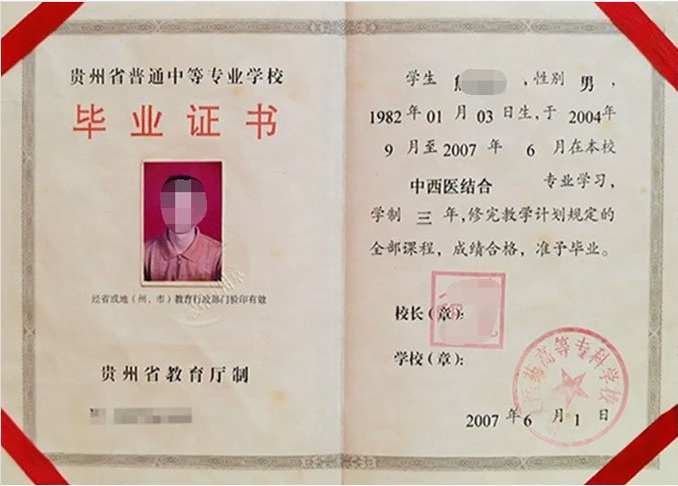 贵州省普通中等专业学校
毕业证书
经省或地（州、市）教育行政部门验印有效
贵州省教育厅制
学生 ，性别 男 ，
1982 年 01 月 03 日生，于 2004年
9 月至 2007 年 6 月在本校
中西医结合 专业学习，
学制 三 年，修完教学计划规定的
全部课程，成绩合格，准予毕业。
校长（章）：
学校（章）：
药高等专科学校
2007 年 6 月 1 日